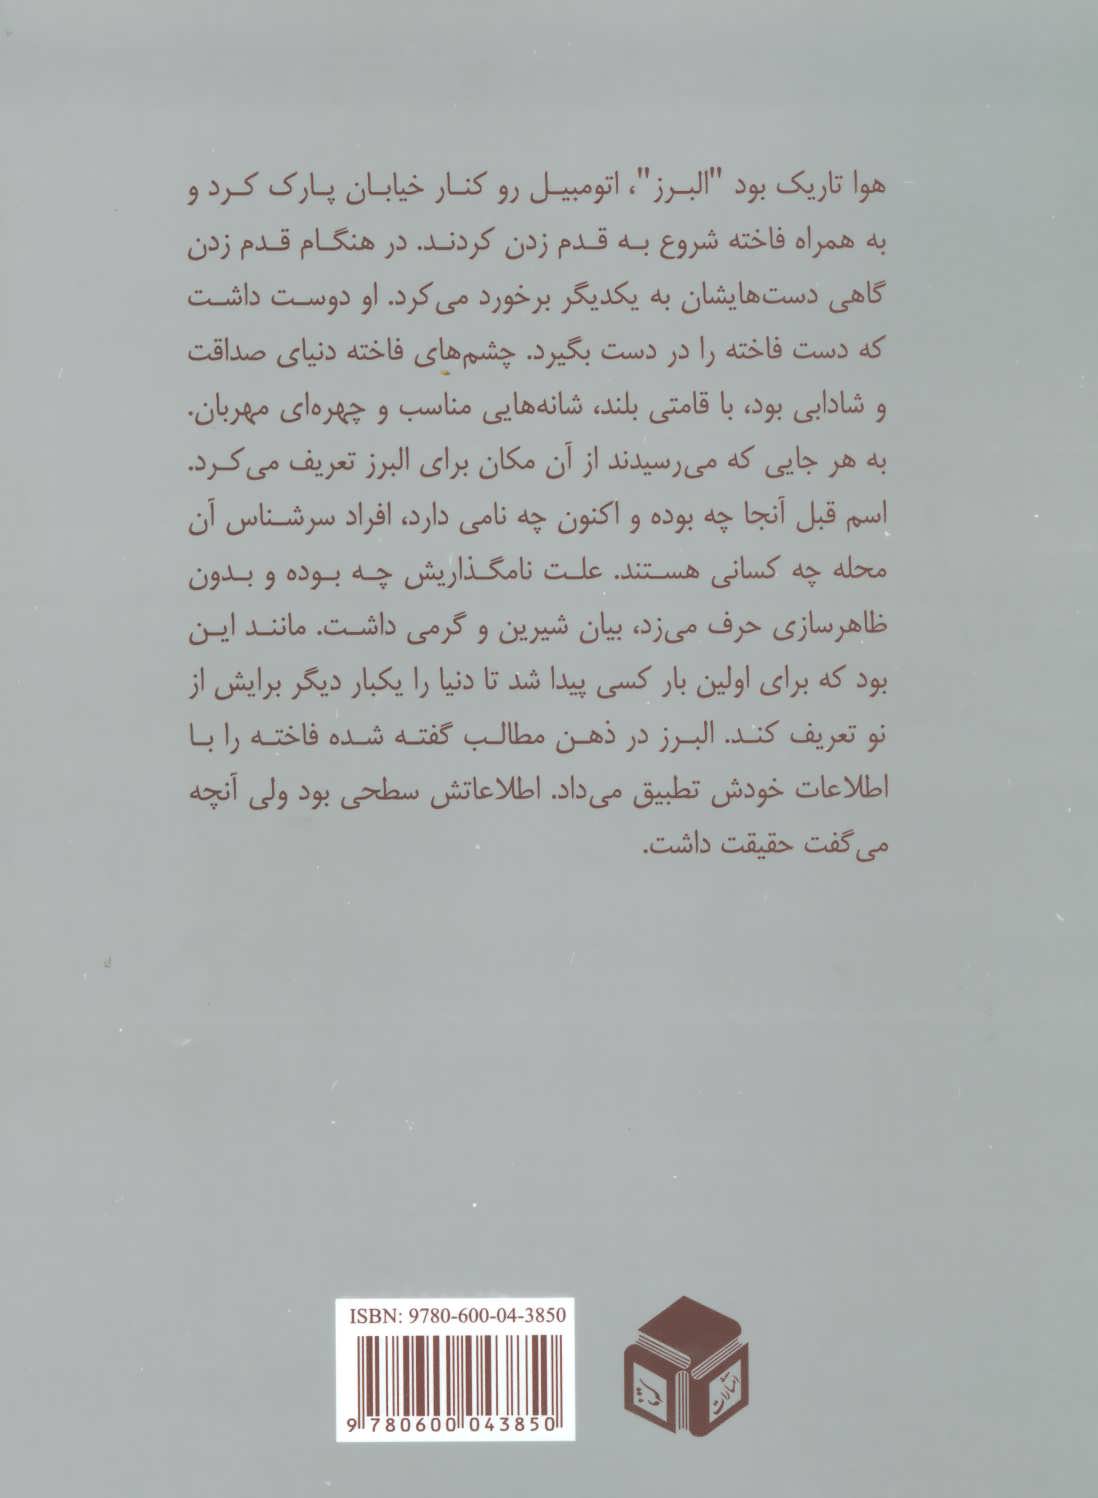 هوا تاریک بود "البرز"، اتومبیل رو کنار خیابان پارک کرد و
به همراه فاخته شروع به قدم زدن کردند. در هنگام قدم زدن
گاهی دست‌هایشان به یکدیگر برخورد می‌کرد. او دوست داشت
که دست فاخته را در دست بگیرد. چشم‌های فاخته دنیای صداقت
و شادابی بود، با قامتی بلند، شانه‌هایی مناسب و چهره‌ای مهربان.
به هر جایی که می‌رسیدند از آن مکان برای البرز تعریف می‌کرد.
اسم قبل آنجا چه بوده و اکنون چه نامی دارد، افراد سرشناس آن
محله چه کسانی هستند. علت نامگذاریش چه بوده و بدون
ظاهرسازی حرف می‌زد، بیان شیرین و گرمی داشت. مانند این
بود که برای اولین بار کسی پیدا شد تا دنیا را یکبار دیگر برایش از
نو تعریف کند. البرز در ذهن مطالب گفته شده فاخته را با
اطلاعات خودش تطبیق می‌داد. اطلاعاتش سطحی بود ولی آنچه
می‌گفت حقیقت داشت.
ISBN: 9780-600-04-3850
9 780600 043850
انتشارات